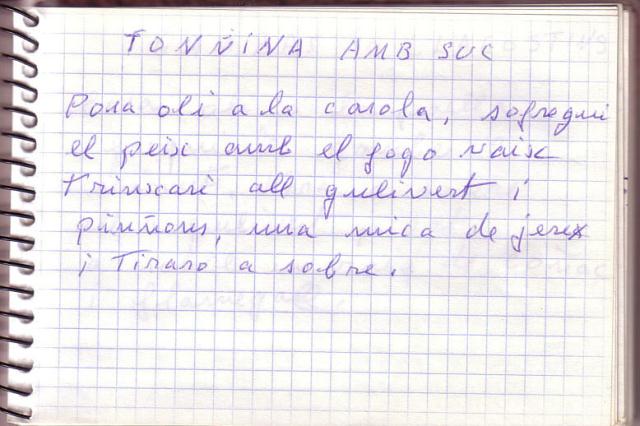 TONÑINA AMB SUC
Posa oli a la casola, sofregui
el peix amb el fogo vaix
Trinxari all gulivert i
piñions, una mica de jerex
i Tiraro a sobre.